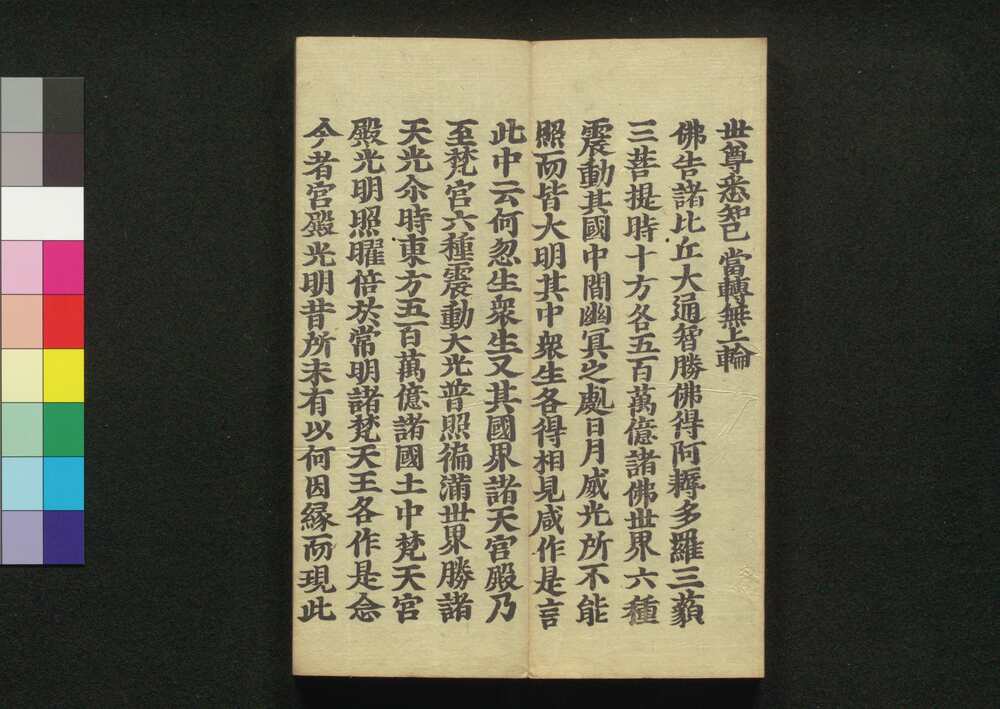 世尊悉知已　當轉無上輪
佛告諸比丘大通智勝佛得阿耨多羅三藐
三菩提時十方各五百萬億諸佛世界六種
震動其國中間幽冥之處日月威光所不能
照而皆大明其中衆生各得相見咸作是言
此中云何忽生衆生又其國界諸天宮殿乃
至梵宮六種震動大光普照徧滿世界勝諸
天光尒時東方五百萬億諸國土中梵天宮
殿光明照曜倍於常明諸梵天王各作是念
今者宮殿光明昔所未有以何因緣而現此